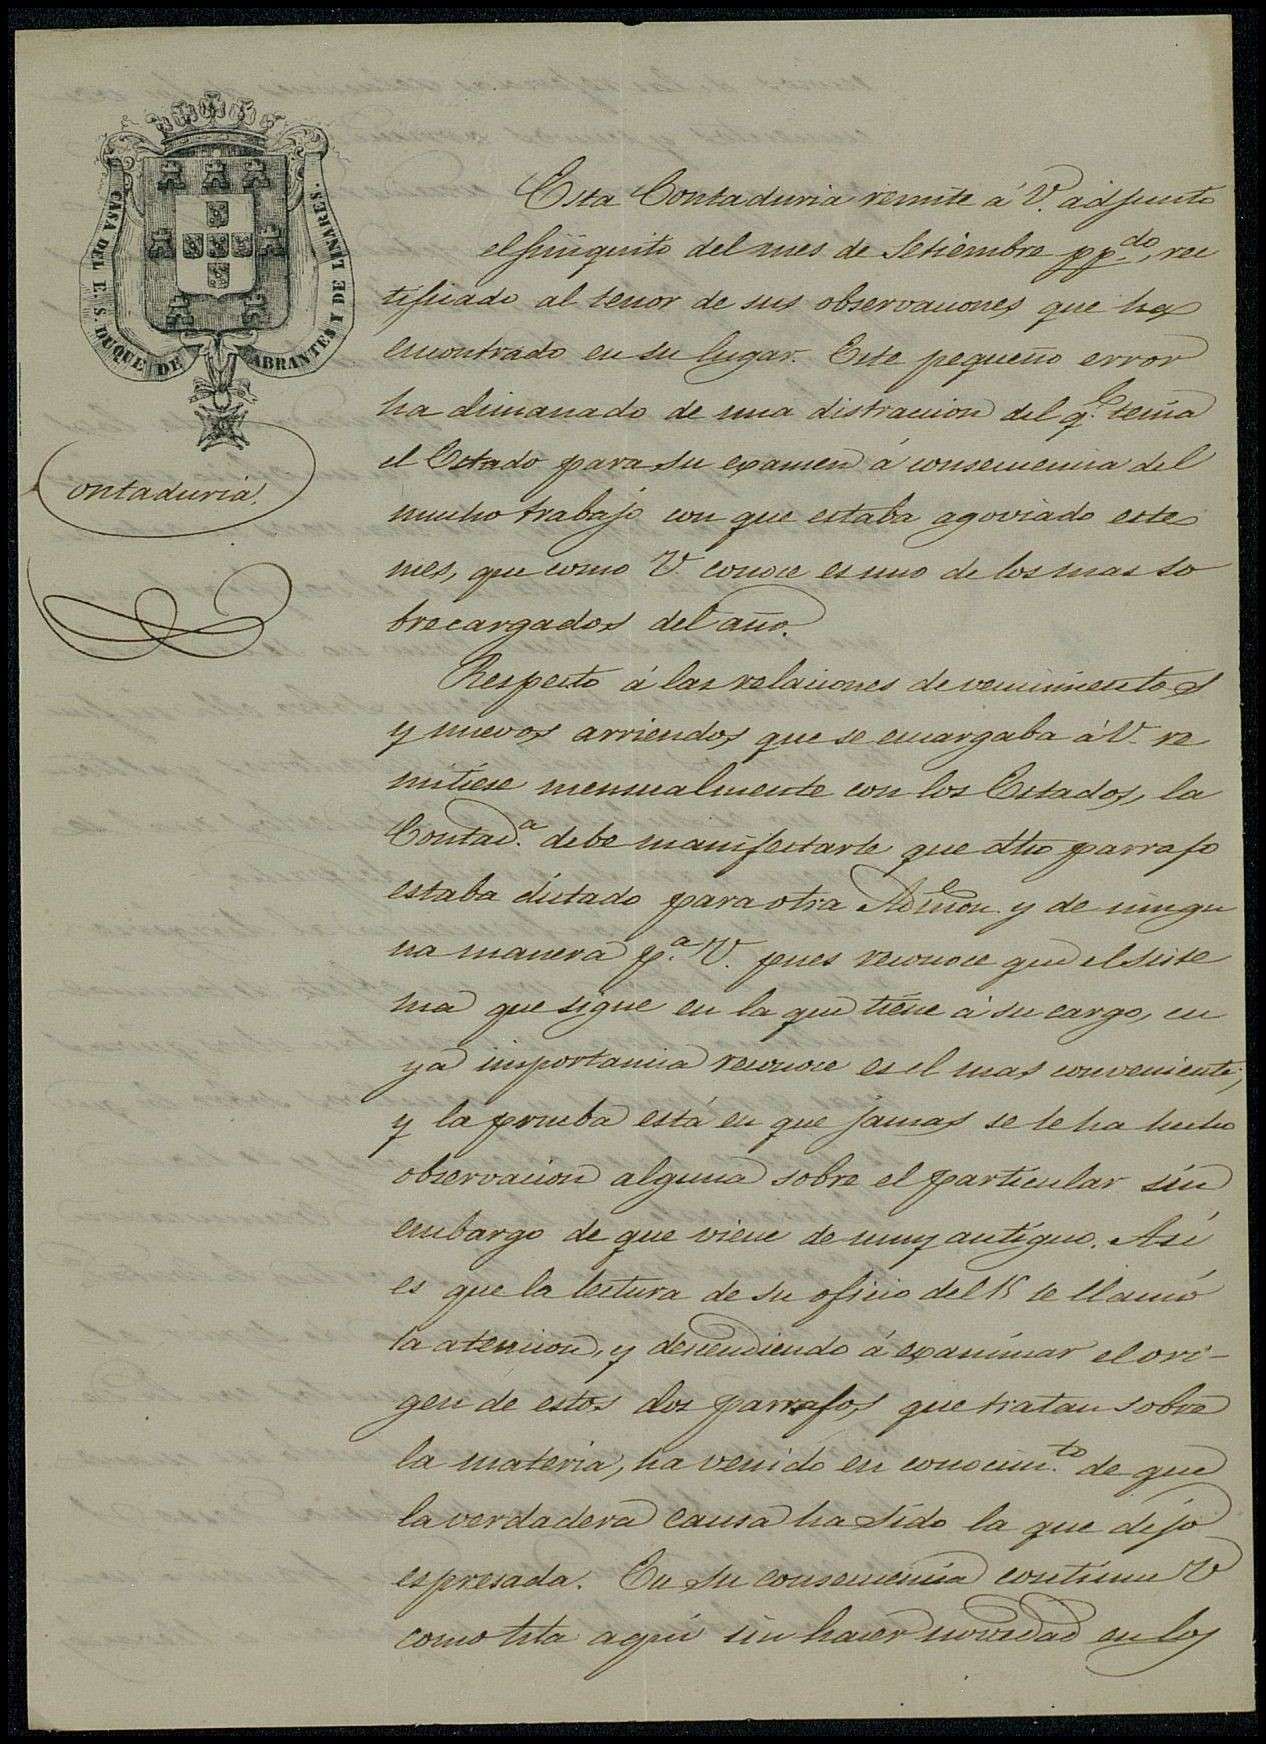 CASA DEL E. S. DUQUE DE ABRANTES Y DE LINARES.
Contaduria.
Esta Contaduria remite á V. adjunto
el finiquito del mes de Setiembre pp.do, rec
tificado al tenor de sus observaciones que ha
encontrado en su lugar. Este pequeño error
ha dimanado de una distracion del q.e tenia
el Estado para su examen á consecuencia del
mucho trabajo con que estaba agoviado este
mes, que como V. conoce es uno de los mas so
brecargados del año.
Respecto á las relaciones de vencimientos
y nuevos arriendos que se encargaba á V. re
mitiese mensualmente con los Estados, la
Contad.a debe manifestarle que dho parrafo
estaba dictado para otra Admon. y de ningu
na manera p.a V. pues reconoce que el siste
ma que sigue en la que tiene á su cargo, cu
ya importancia reconoce es el mas conveniente;
y la prueba está en que jamas se le ha hecho
observacion alguna sobre el particular sin
embargo de que viene de muy antiguo. Asi
es que la lectura de su oficio del 15 le llamó
la atencion, y descendiendo á examinar el ori-
gen de estos dos parrafos que tratan sobre
la materia, ha venido en conocim.to de que
la verdadera causa ha sido la que dejo
espresada. En su consecuencia continue V
como hta aqui sin hacer novedad en los